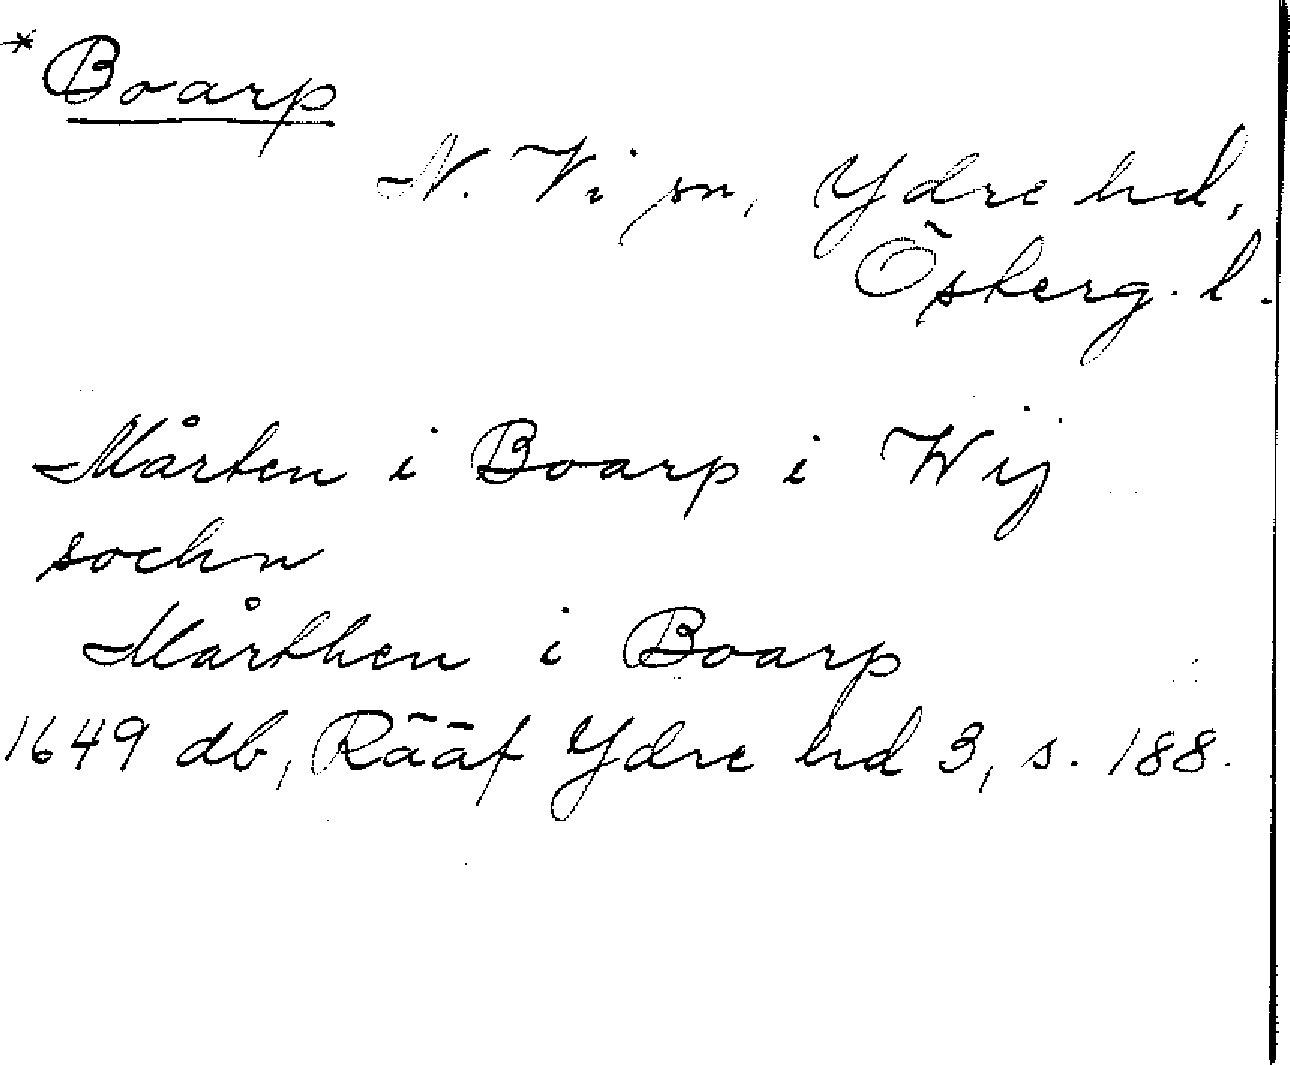 * Boarp
N. Vi sn, Ydre hd,
Östergl.
Mårten i Boarp i Wij
sochn
Mårthen i Boarp
1649 db, Rääf Ydre hd 3, s. 188.